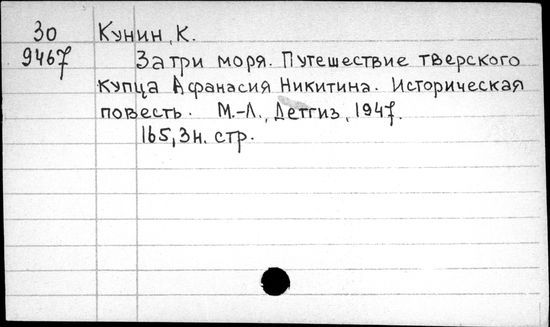 30 Кунин, К.
9467 За три моря. Путешествие тверского
купца Афанасия Никитина. Историческая
повесть. М.-Л., Детгиз, 1947.
165, 3н. стр.